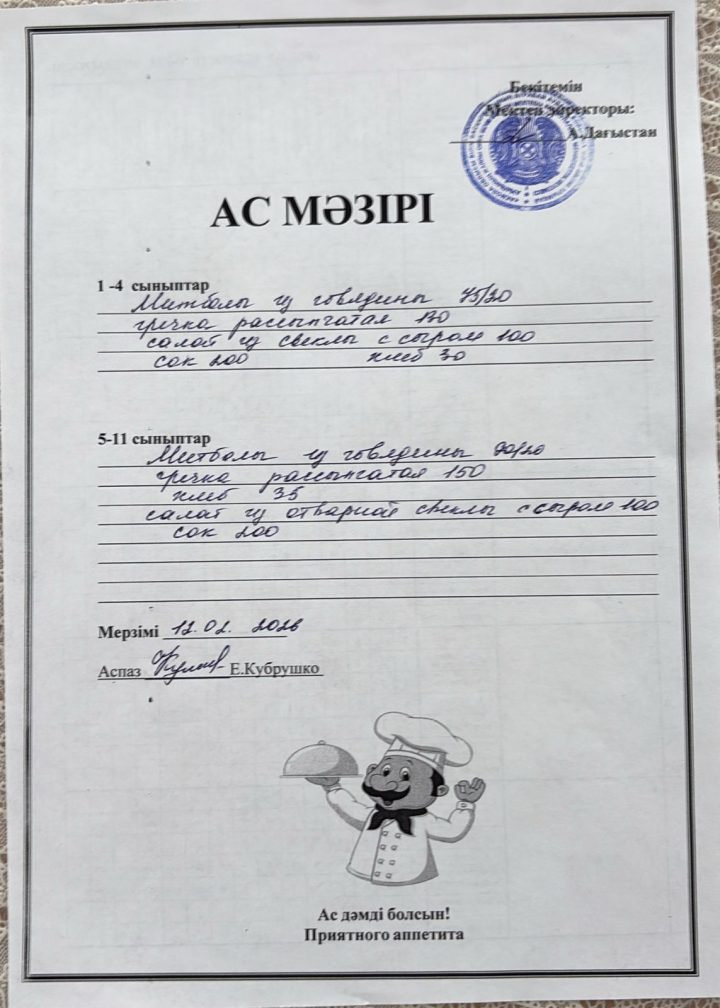 Бекітемін
Мектеп директоры:
А.Дағыстан
АС МӘЗІРІ
1 -4 сыныптар
Митболы из говядины 75/20
гречка рассыпчатая 130
салат из свеклы с сыром 100
сок 200 хлеб 30
5-11 сыныптар
Митболы из говядины 90/20
гречка рассыпчатая 150
хлеб 35
салат из отварной свеклы с сыром 100
сок 200
Мерзімі 12.02. 2026
Аспаз Е.Кубрушко
Ас дәмді болсын!
Приятного аппетита